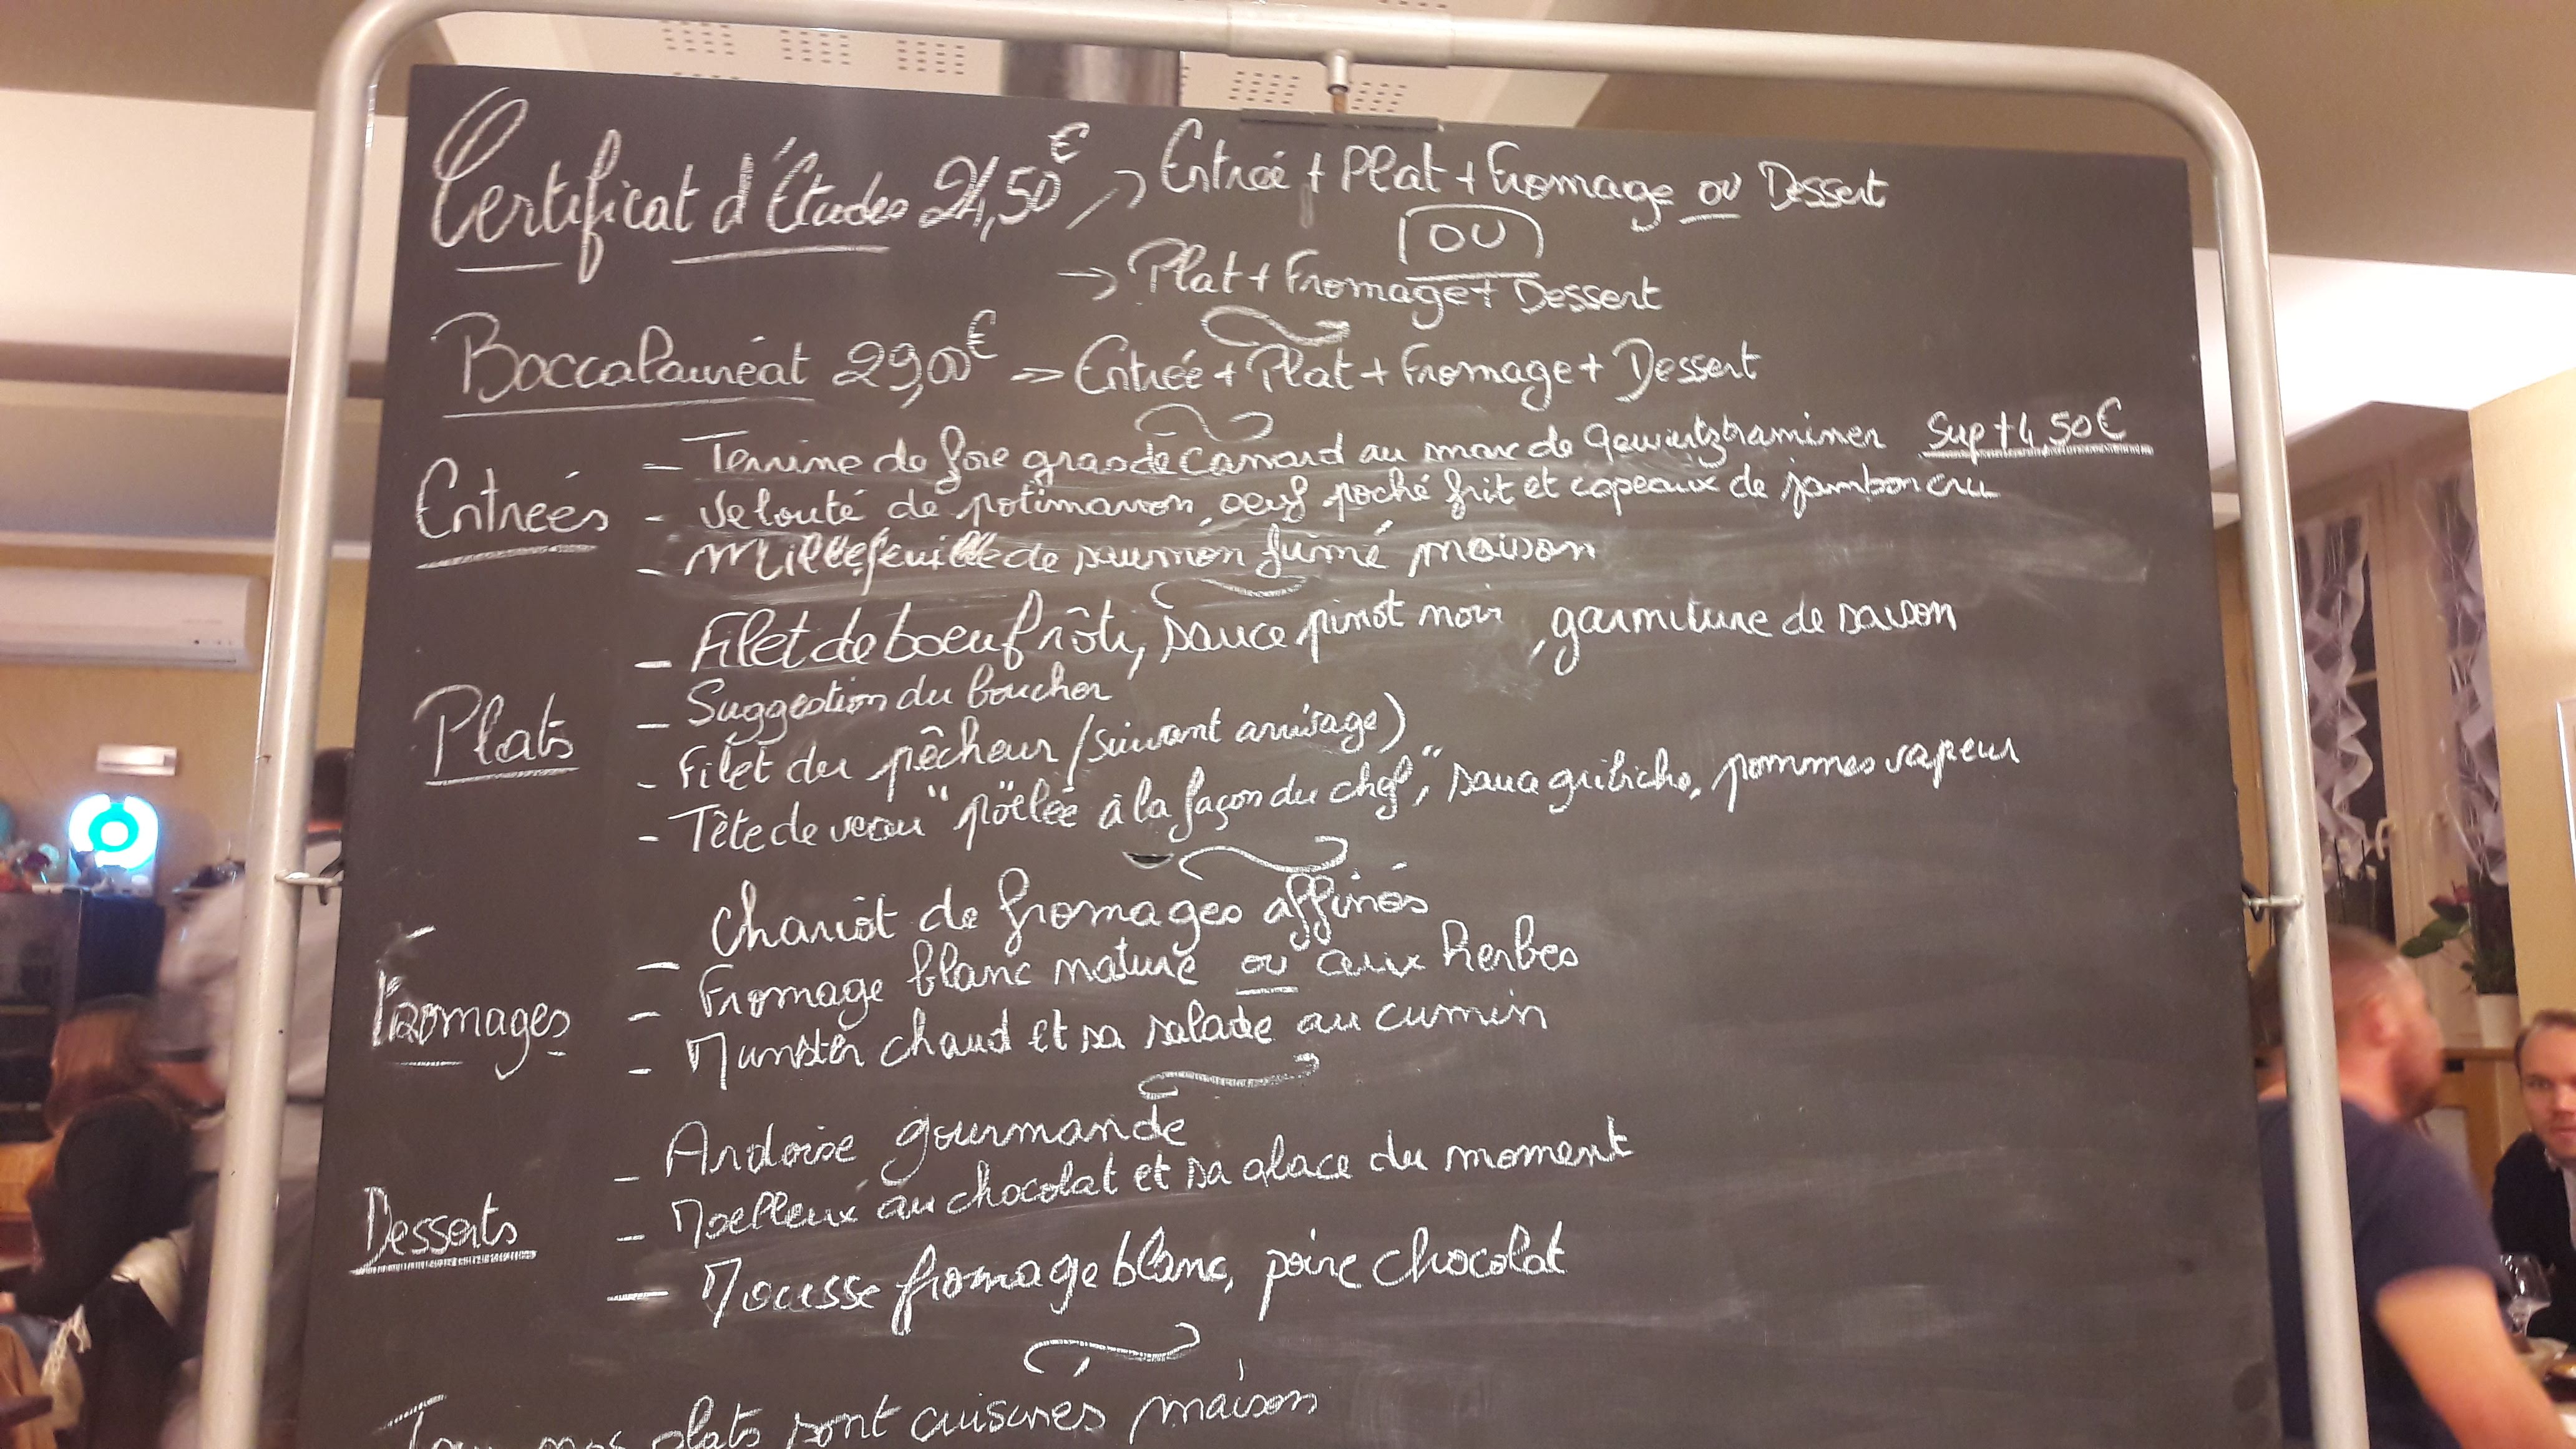 Certificat d'Études 24,50€ → Entrée + Plat + Fromage ou Dessert
OU
→ Plat + Fromage + Dessert
Baccalauréat 29,00€ → Entrée + Plat + Fromage + Dessert
Entrées
- Terrine de foie gras de Canard au marc de Gewurtztraminer Sup + 4,50€
- Velouté de potimarron, oeuf poché frit et copeaux de jambon cru
- Millefeuille de saumon fumé maison
Plats
- Filet de boeuf rôti, sauce pinot noir, garniture de saison
- Suggestion du boucher
- Filet du pêcheur (suivant arrivage)
- Tête de veau "pöelée à la façon du chef", sauce gribiche, pommes vapeur
Fromages
- Chariot de fromages affinés
- Fromage blanc nature ou aux herbes
- Munster chaud et sa salade au cumin
Desserts
- Ardoise gourmande
- Moelleux au chocolat et sa glace du moment
- Mousse fromage blanc, poire chocolat
Tous nos plats sont cuisinés maison